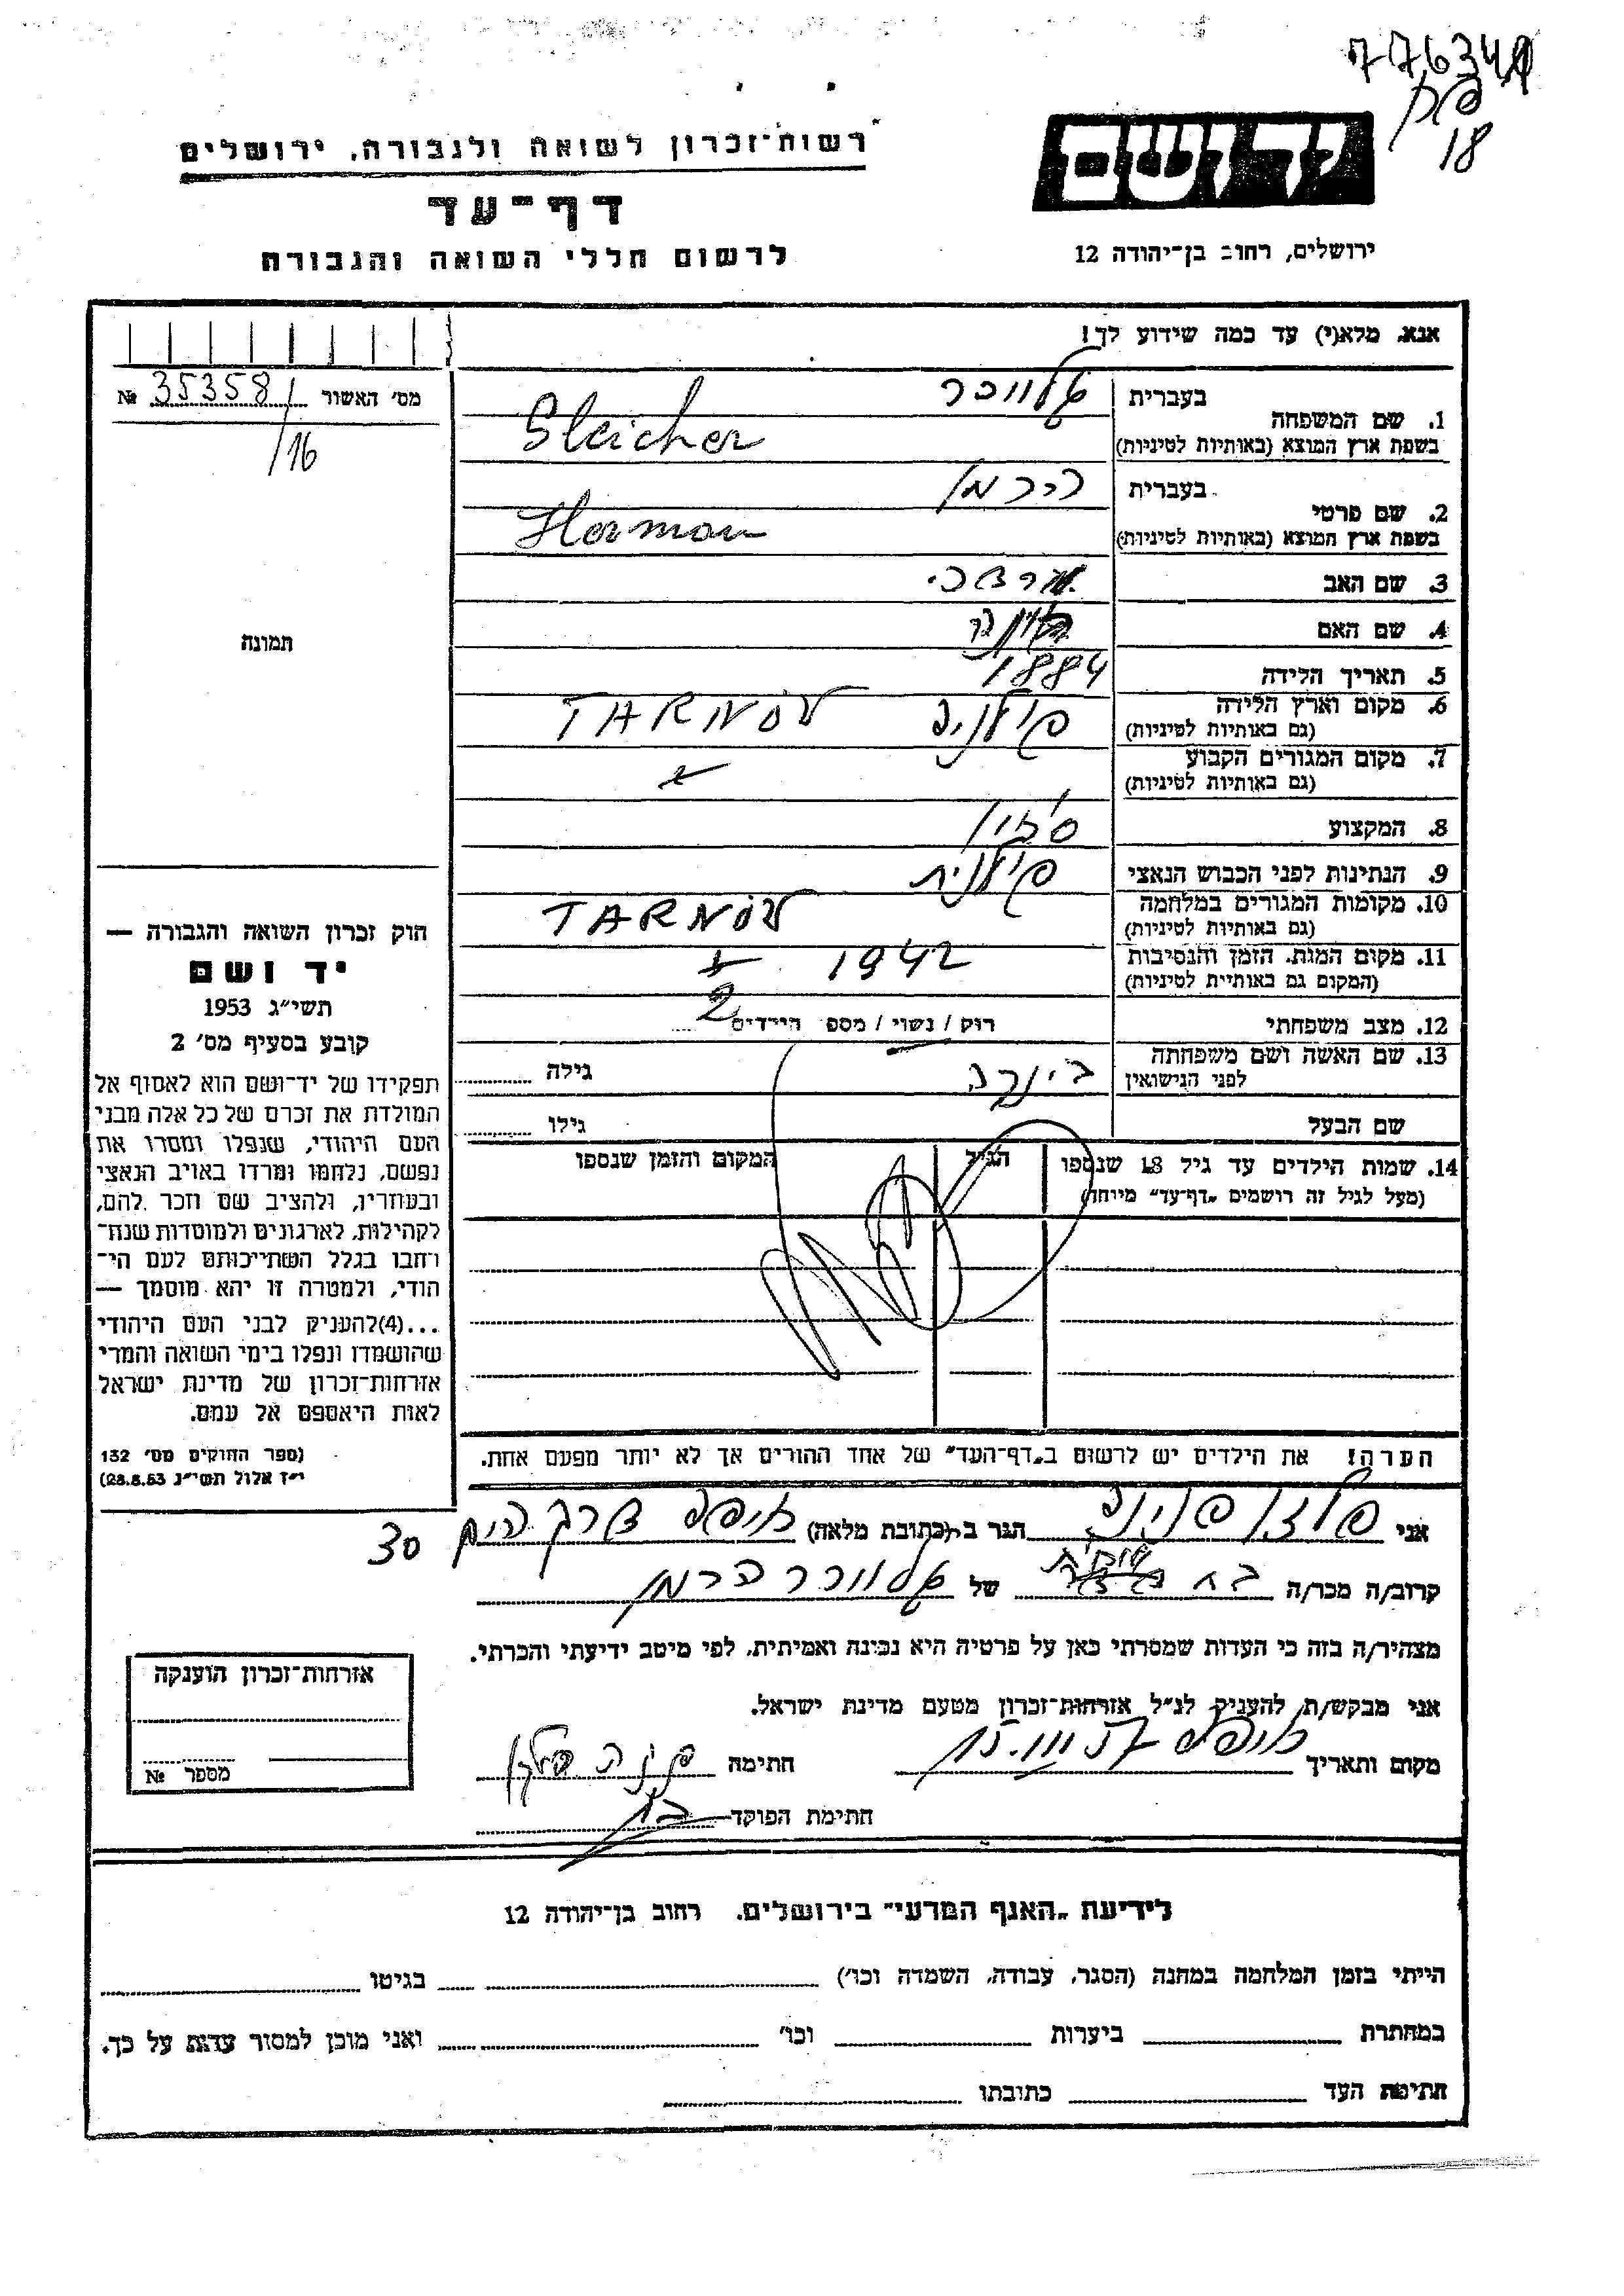 776349
18
רשות־זכרון לשואה ולגבורה, ירושלים
יד ושם
דף־עד
לרשום חללי השואה והגבורה
ירושלים, רחוב בן־יהודה 12
אנא, מלא(י) עד כמה שידוע לך!
מס' האשור № 35358
/16
1. שם המשפחה
בעברית שלייכר
בשפת ארץ המוצא (באותיות לטיניות) Sleicher
2. שם פרטי
בעברית הרמן
בשפת ארץ המוצא (באותיות לטיניות) Herman
3. שם האב מרדכי
4. שם האם
5. תאריך הלידה 1884
6. מקום וארץ הלידה (גם באותיות לטיניות) פולניה TARNÓW
7. מקום המגורים הקבוע (גם באותיות לטיניות)
8. המקצוע
9. הנתינות לפני הכבוש הנאצי פולנית
10. מקומות המגורים במלחמה (גם באותיות לטיניות) TARNÓW
11. מקום המות, הזמן והנסיבות (המקום גם באותיות לטיניות) 1942
12. מצב משפחתי רוק / נשוי / מספר הילדים 2
13. שם האשה ושם משפחתה לפני הנישואין גילה
שם הבעל גילו
14. שמות הילדים עד גיל 18 שנספו (מעל לגיל זה רושמים "דף־עד" מיוחד)
הגיל
המקום והזמן שנספו
תמונה
חוק זכרון השואה והגבורה —
יד ושם
תשי״ג 1953
קובע בסעיף מס' 2
תפקידו של יד־ושם הוא לאסוף אל
המולדת את זכרם של כל אלה מבני
העם היהודי, שנפלו ומסרו את
נפשם, נלחמו ומרדו באויב הנאצי
ובעוזריו, ולהציב שם וזכר להם,
לקהילות, לארגונים ולמוסדות שנח־
רחבו בגלל השתייכותם לעם הי־
הודי, ולמטרה זו יהא מוסמך —
...(4)להעניק לבני העם היהודי
שהושמדו ונפלו בימי השואה והמרי
אזרחות־זכרון של מדינת ישראל
לאות היאספם אל עמם.
(ספר החוקים מס' 132
י״ז אלול תשי״ג 28.8.53)
הערה! את הילדים יש לרשום ב"דף־העד" של אחד ההורים אך לא יותר מפעם אחת.
אני הגר ב־(כתובת מלאה) חיפה דרך הים 30
קרוב/ה מכר/ה של שלייכר הרמן
מצהיר/ה בזה כי העדות שמסרתי כאן על פרטיה היא נכונה ואמיתית, לפי מיטב ידיעתי והכרתי.
אני מבקש/ת להעניק לנ״ל אזרחות־זכרון מטעם מדינת ישראל.
מקום ותאריך חיפה חתימה
חתימת הפוקד
אזרחות־זכרון הוענקה
מספר №
לידיעת "האגף המדעי" בירושלים, רחוב בן־יהודה 12
הייתי בזמן המלחמה במחנה (הסגר, עבודה, השמדה וכו') בגיטו
במחתרת ביערות וכו' ואני מוכן למסור עדות על כך.
חתימת העד כתובתו